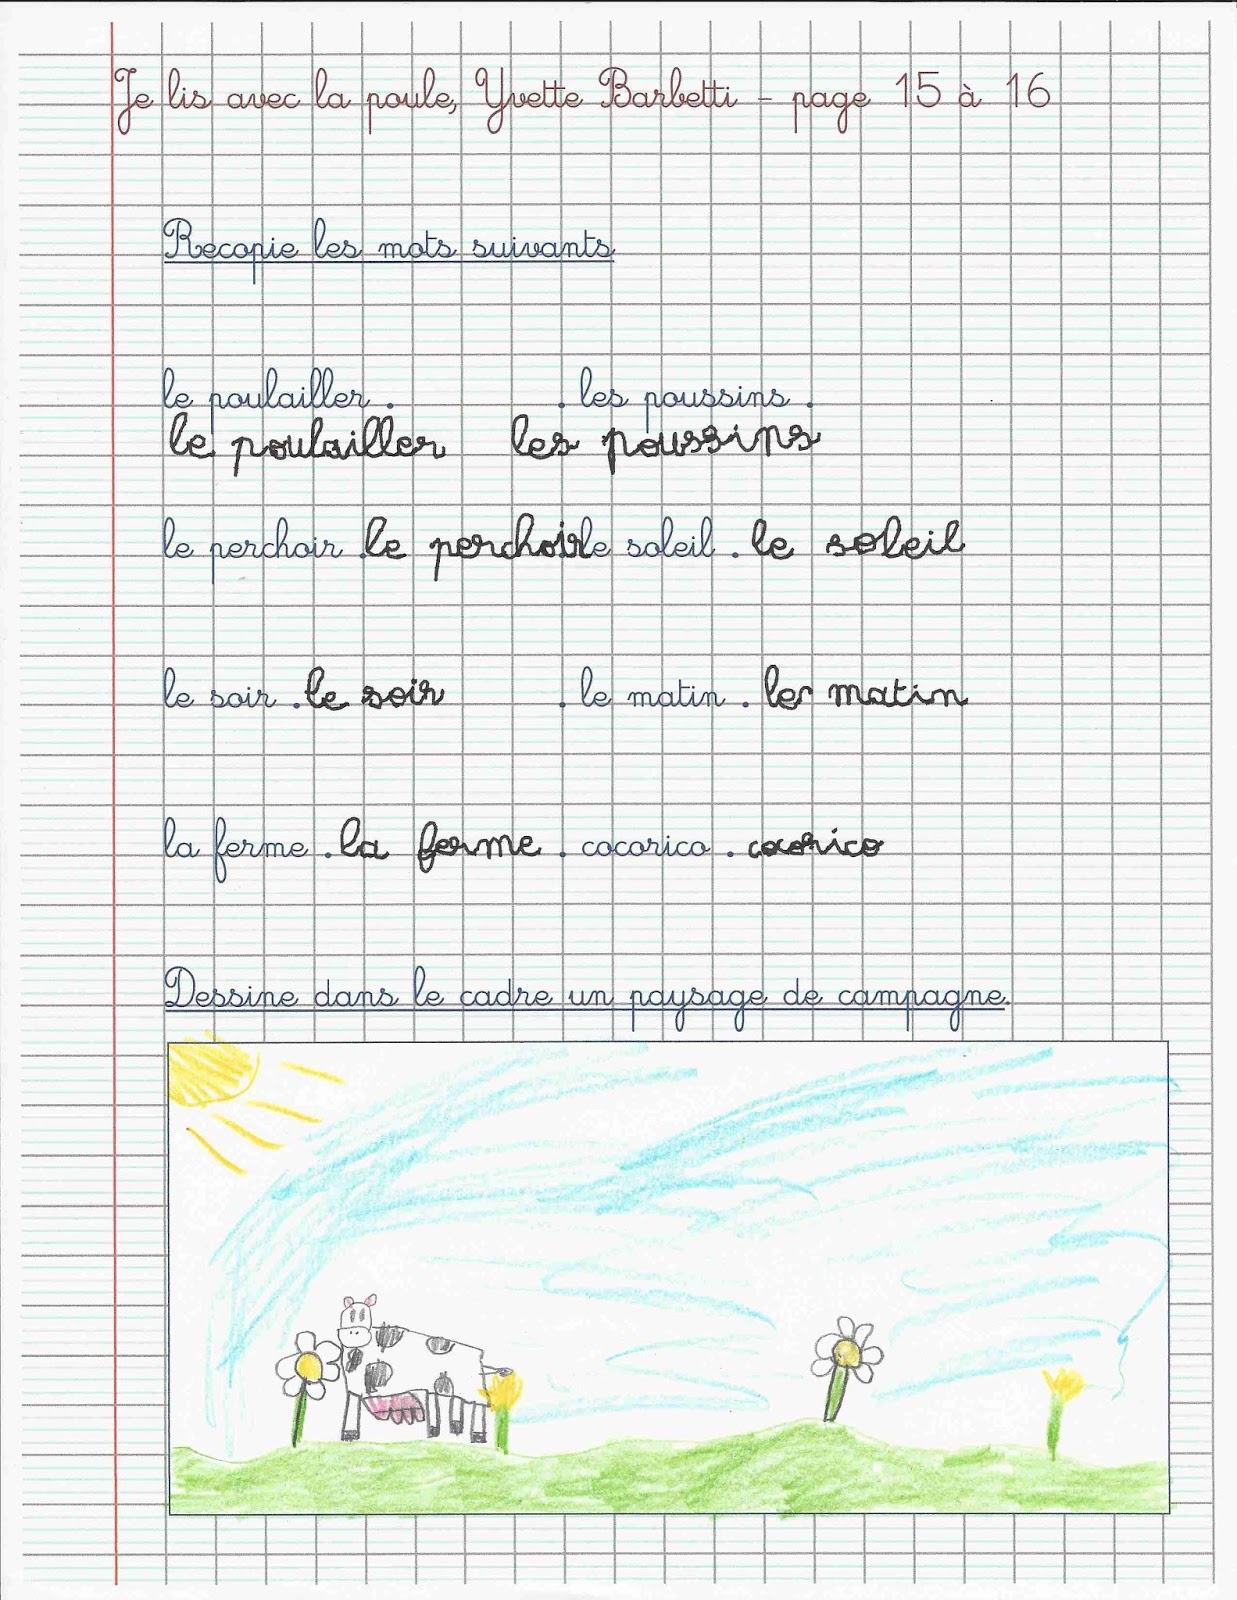 Je lis avec la poule, Yvette Barbetti - page 15 à 16
Recopie les mots suivants
le poulailler . . les poussins .
le poulailler les poussins
le perchoir . le perchoir le soleil . le soleil
le soir . le soir . le matin . le matin
la ferme . la ferme . cocorico . cocorico
Dessine dans le cadre un paysage de campagne.